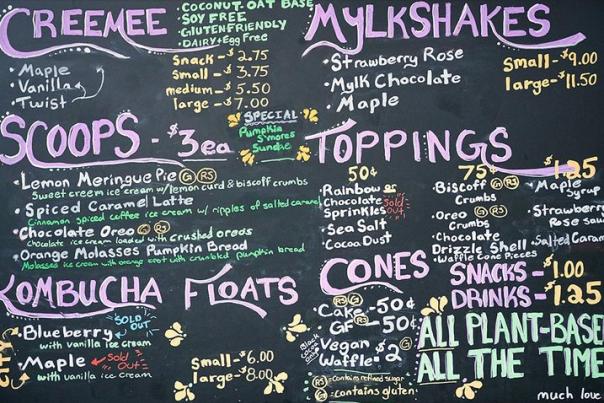 CREEMEE
• COCONUT-OAT BASE
• SOY FREE
• GLUTENFRIENDLY
• DAIRY+Egg Free
• Maple
• Vanilla
• Twist
Snack - $2.75
Small - $3.75
medium - $5.50
large - $7.00
MYLKSHAKES
• Strawberry Rose
• Mylk Chocolate
• Maple
Small - $9.00
large - $11.50
SCOOPS - $3ea
SPECIAL
Pumpkin
S'mores
Sundae
• Lemon Meringue Pie G RS
Sweet creem ice cream w/lemon curd & biscoff crumbs
• Spiced Caramel Latte
Cinnamon spiced coffee ice cream w/ ripples of salted caramel
• Chocolate Oreo G RS
chocolate ice cream loaded with crushed oreos
• Orange Molasses Pumpkin Bread
Molasses ice cream with orange zest with crumbled pumpkin bread
TOPPINGS
50¢
• Rainbow or
Chocolate
Sprinkles
Sold
OUT
• Sea Salt
• Cocoa Dust
75¢
• Biscoff G RS
Crumbs
• Oreo G RS
Crumbs
• Chocolate
Drizzle Shell
• Waffle Cone Pieces
$1.25
• Maple
Syrup
• Strawberry
Rose
• Salted Caram
KOMBUCHA FLOATS
• Blueberry
SOLD
OUT
with vanilla ice cream
• Maple
Sold
Out
with vanilla ice cream
Small - $6.00
large - $8.00
CONES
G RS
• Cake - 50¢
RS
GF - 50¢
Vegan
Waffle • $2 G
RS = contains refined sugar
G = contains gluten
SNACKS - $1.00
DRINKS - $1.25
ALL PLANT-BASE
ALL THE TIME
much love